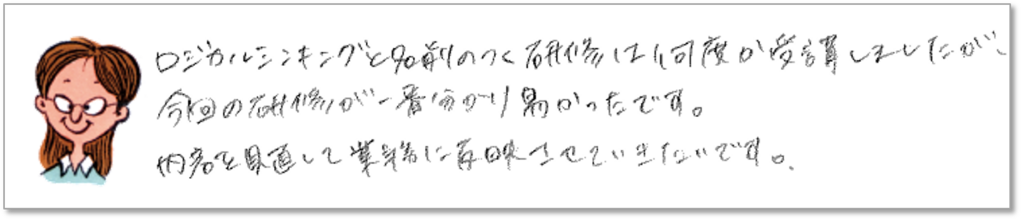 ロジカルシンキングと名前のつく研修は何度か受講しましたが、
今回の研修が一番分かり易かったです。
内容を見直して業務に反映させていきたいです。